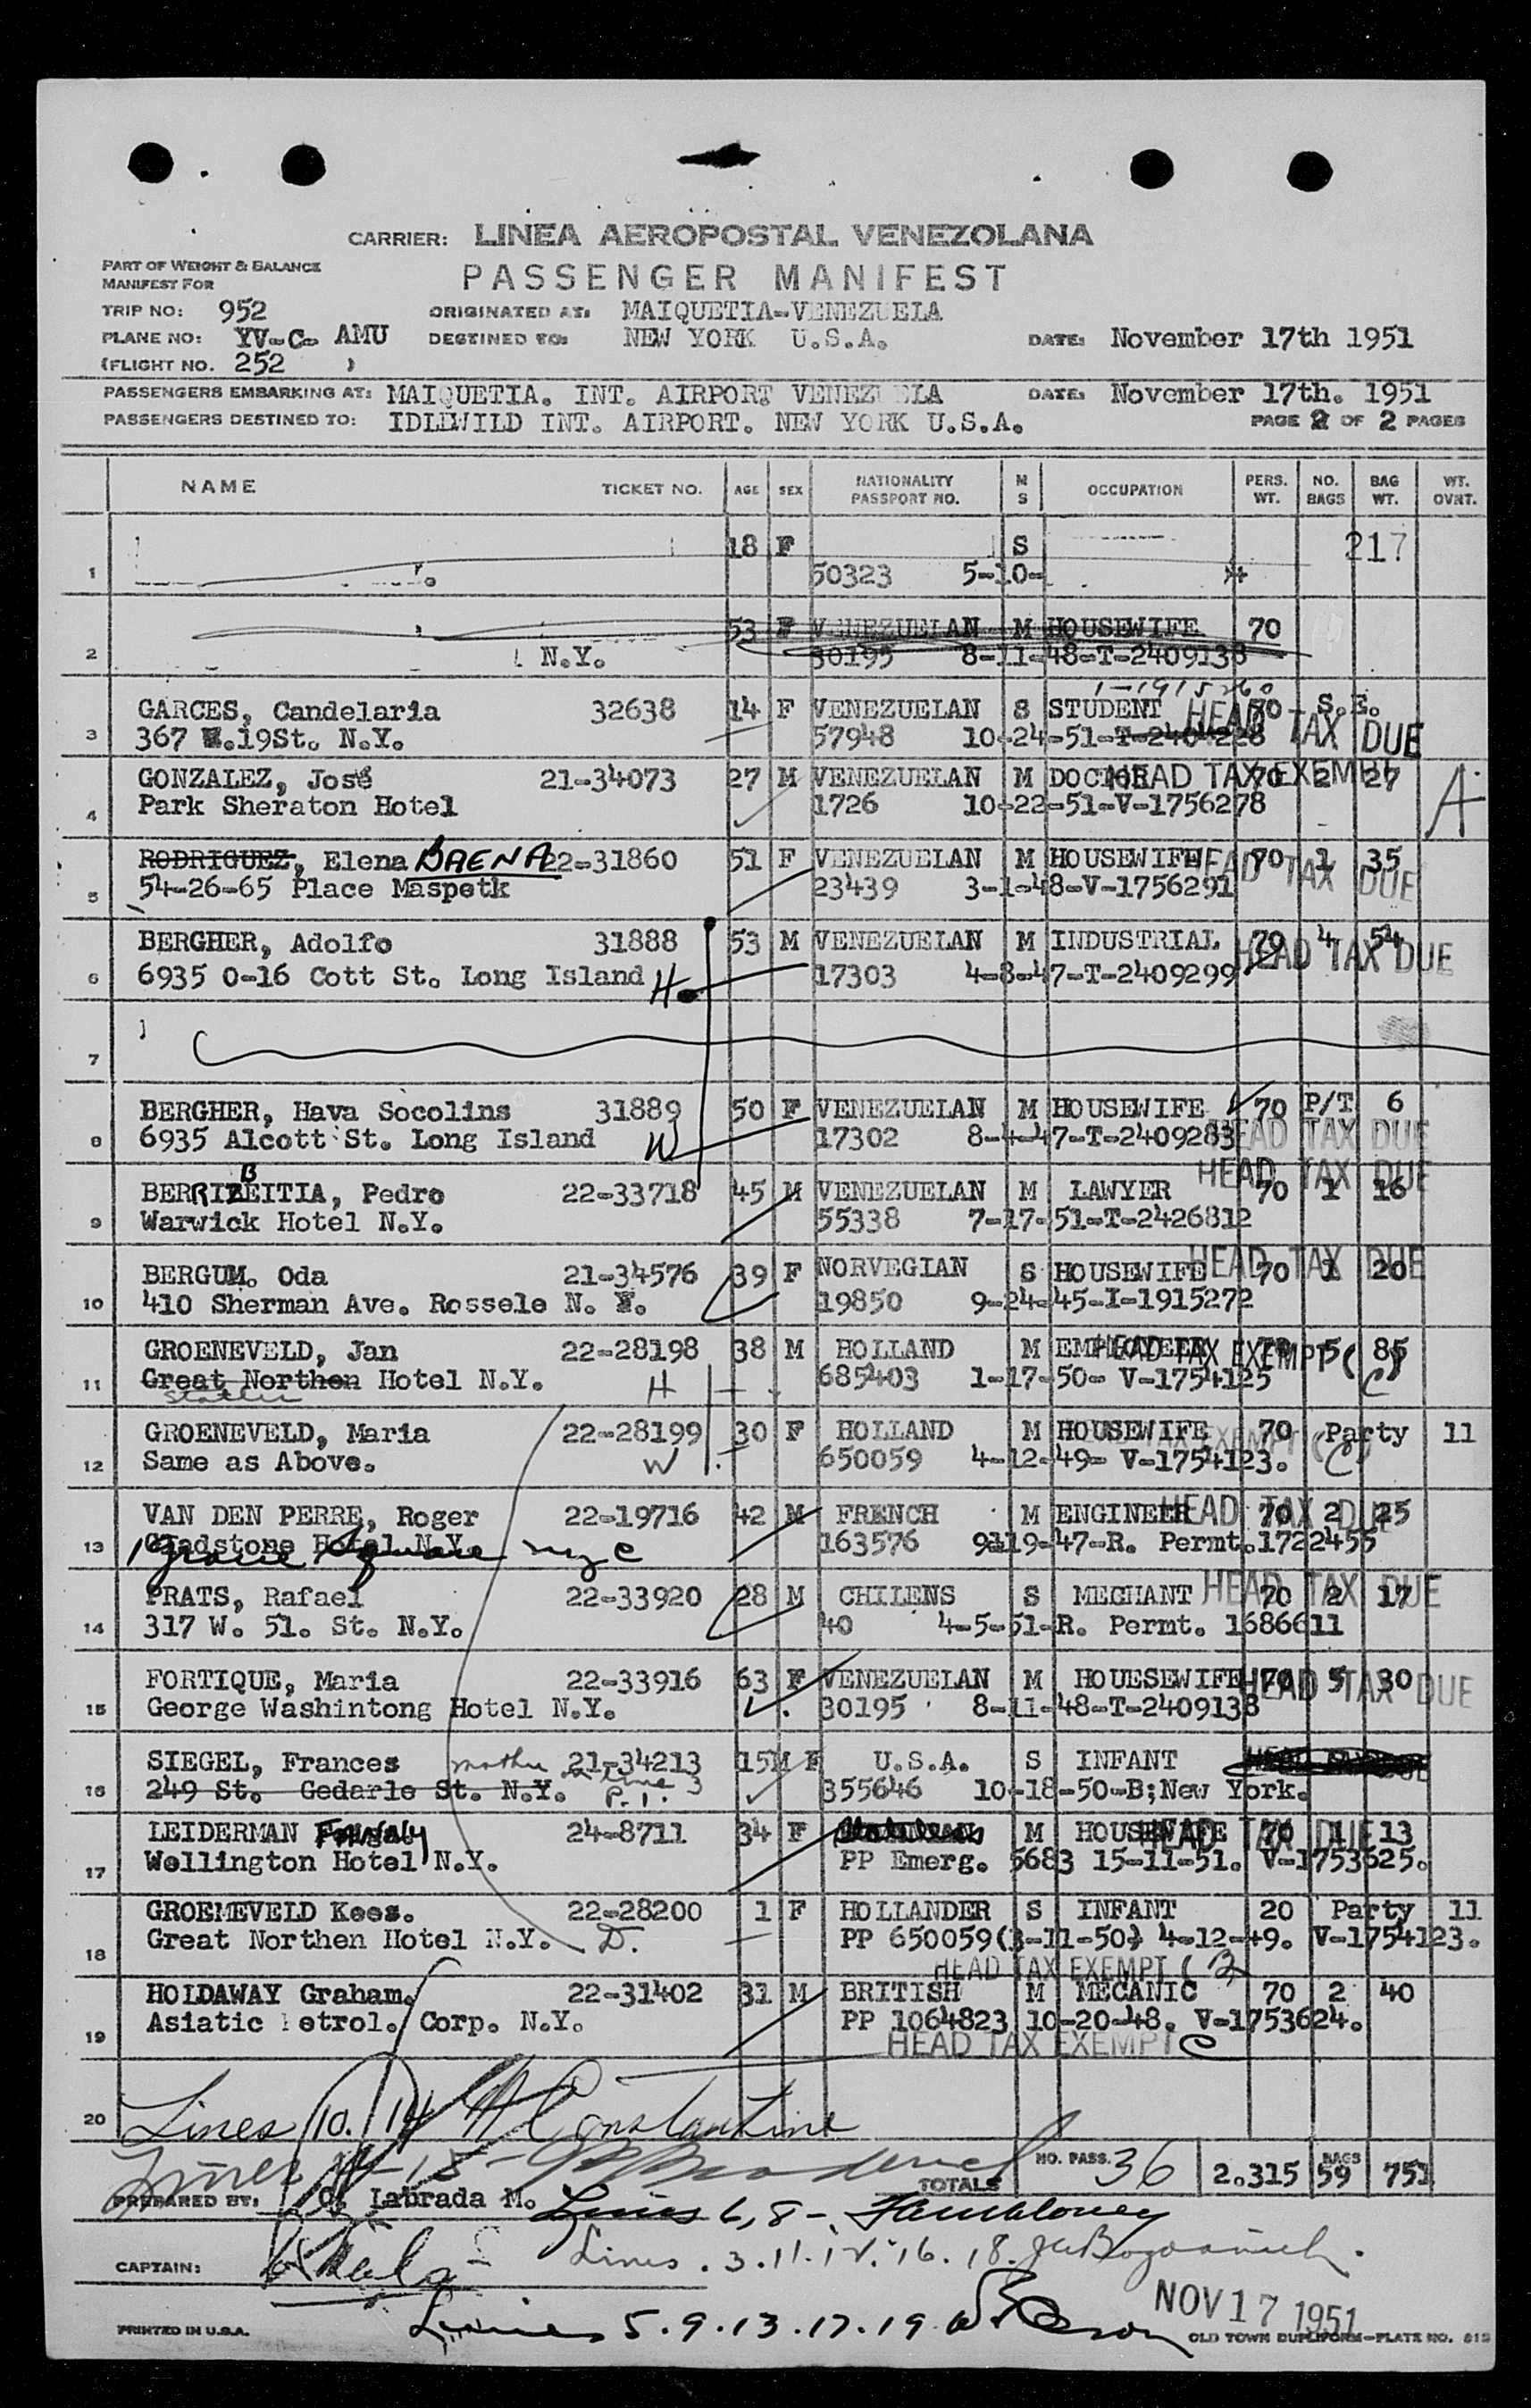 CARRIER: LINEA AEROPOSTAL VENEZOLANA
PART OF WEIGHT & BALANCE
MANIFEST FOR
PASSENGER MANIFEST
TRIP NO: 952 ORIGINATED AT: MAIQUETIA-VENEZUELA
PLANE NO: YV-C- AMU DESTINED TO: NEW YORK U.S.A. DATE: November 17th 1951
(FLIGHT NO. 252 )
PASSENGERS EMBARKING AT: MAIQUETIA. INT. AIRPORT VENEZUELA DATE: November 17th. 1951
PASSENGERS DESTINED TO: IDLEWILD INT. AIRPORT. NEW YORK U.S.A. PAGE 2 OF 2 PAGES
NAME TICKET NO. AGE SEX NATIONALITY PASSPORT NO. M S OCCUPATION PERS. WT. NO. BAGS BAG WT. WT. OVNT.
18 F S 217
1 50323 5-10-
53 F VENEZUELAN M HOUSEWIFE 70
2 N.Y. 30195 8-11-48-T-2409138
1-1915260
GARCES, Candelaria 32638 14 F VENEZUELAN S STUDENT 70 S.E.
HEAD TAX DUE
3 367 W.19St. N.Y. 57948 10-24-51-T-2404228
GONZALEZ, José 21-34073 27 M VENEZUELAN M DOCTOR 70 2 27
HEAD TAX EXEMPT A
4 Park Sheraton Hotel 1726 10-22-51-V-1756278
RODRIGUEZ, Elena BAENA 22-31860 51 F VENEZUELAN M HOUSEWIFE 70 1 35
HEAD TAX DUE
5 54-26-65 Place Maspetk 23439 3-1-48-V-1756291
BERGHER, Adolfo 31888 53 M VENEZUELAN M INDUSTRIAL 70 4 54
HEAD TAX DUE
6 6935 O-16 Cott St. Long Island H 17303 4-8-47-T-2409299
7
BERGHER, Hava Socolins 31889 50 F VENEZUELAN M HOUSEWIFE 70 P/T 6
8 6935 Alcott St. Long Island W 17302 8-4-47-T-2409283
HEAD TAX DUE
HEAD TAX DUE
BERRIBEITIA, Pedro 22-33718 45 M VENEZUELAN M LAWYER 70 1 16
9 Warwick Hotel N.Y. 55338 7-17-51-T-2426812
HEAD TAX DUE
BERGUM. Oda 21-34576 39 F NORVEGIAN S HOUSEWIFE 70 1 20
10 410 Sherman Ave. Rossele N. Y. 19850 9-24-45-I-1915272
GROENEVELD, Jan 22-28198 38 M HOLLAND M EMPLOYEER 70 5 85
HEAD TAX EXEMPT (C)
11 Great Northen Hotel N.Y. H 685403 1-17-50- V-1754125
Statler
GROENEVELD, Maria 22-28199 30 F HOLLAND M HOUSEWIFE 70 Party 11
TAX EXEMPT (C)
12 Same as Above. W 650059 4-12-49- V-1754123.
VAN DEN PERRE, Roger 22-19716 42 M FRENCH M ENGINEER 70 2 25
HEAD TAX DUE
13 Gladstone Hotel N.Y. 163576 9-19-47-R. Permt.1722455
1 Gracie Square nyc
PRATS, Rafael 22-33920 28 M CHILENS S MECHANT 70 2 17
HEAD TAX DUE
14 317 W. 51. St. N.Y. 40 4-5-51-R. Permt. 1686611
FORTIQUE, Maria 22-33916 63 F VENEZUELAN M HOUESEWIFE 70 5 30
HEAD TAX DUE
15 George Washintong Hotel N.Y. 30195 8-11-48-T-2409138
SIEGEL, Frances mother 21-34213 15M F U.S.A. S INFANT
on line 3
16 249 St. Gedarle St. N.Y. P.1. 355646 10-18-50-B;New York.
LEIDERMAN 24-8711 34 F M HOUSEWIFE 70 1 13
HEAD TAX DUE
17 Wellington Hotel N.Y. PP Emerg. 5683 15-11-51. V-1753625.
GROEMEVELD Kees. 22-28200 1 F HOLLANDER S INFANT 20 Party 11
18 Great Northen Hotel N.Y. D. PP 650059(3-11-50) 4-12-49. V-1754123.
HEAD TAX EXEMPT
HOLDAWAY Graham. 22-31402 31 M BRITISH M MECANIC 70 2 40
19 Asiatic etrol. Corp. N.Y. PP 1064823 10-20-48. V-1753624.
HEAD TAX EXEMPT C
20 Lines 10. 14 Constantine
TOTALS NO. PASS. 36 2.315 BAGS 59 751
PREPARED BY: Labrada M. Lines 6, 8 -
CAPTAIN: Lines . 3. 11. 12. 16. 18.
Lines 5. 9. 13. 17. 19
NOV 17 1951
PRINTED IN U.S.A. OLD TOWN DUPLIFORM-PLATE NO. 815